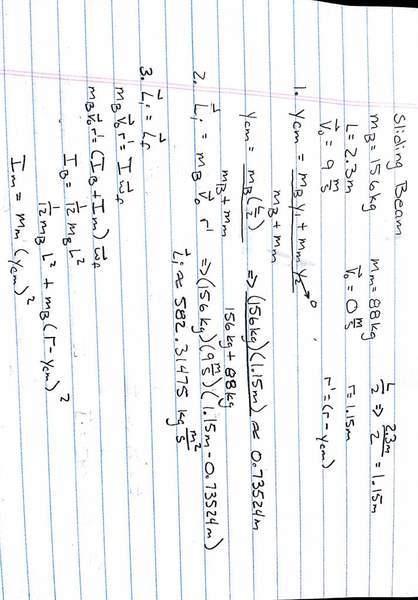 Sliding Beam
m_B = 156 kg    m_m = 88 kg    L/2 ⇒ 2.3m/2 = 1.15m
L = 2.3m    v⃗_0 = 0 m/s    r = 1.15m
v⃗_0 = 9 m/s    r' = (r - y_cm)
1. y_cm = (m_B y_1 + m_m y_2→0) / (m_B + m_m)
y_cm = m_B(L/2) / (m_B + m_m) ⇒ (156kg)(1.15m) / (156kg + 88kg) ≈ 0.73524m
2. L⃗_i = m_B v⃗_0 r' ⇒ (156kg)(9 m/s)(1.15m - 0.73524m)
L⃗_i ≈ 582.31475 kg m²/s
3. L⃗_i = L⃗_f
m_B v⃗_0 r' = I ω⃗_f
m_B v⃗_0 r' = (I_B + I_m) ω⃗_f
I_B = 1/12 m_B L²
1/12 m_B L² + m_B (r - y_cm)²
I_m = m_m (y_cm)²